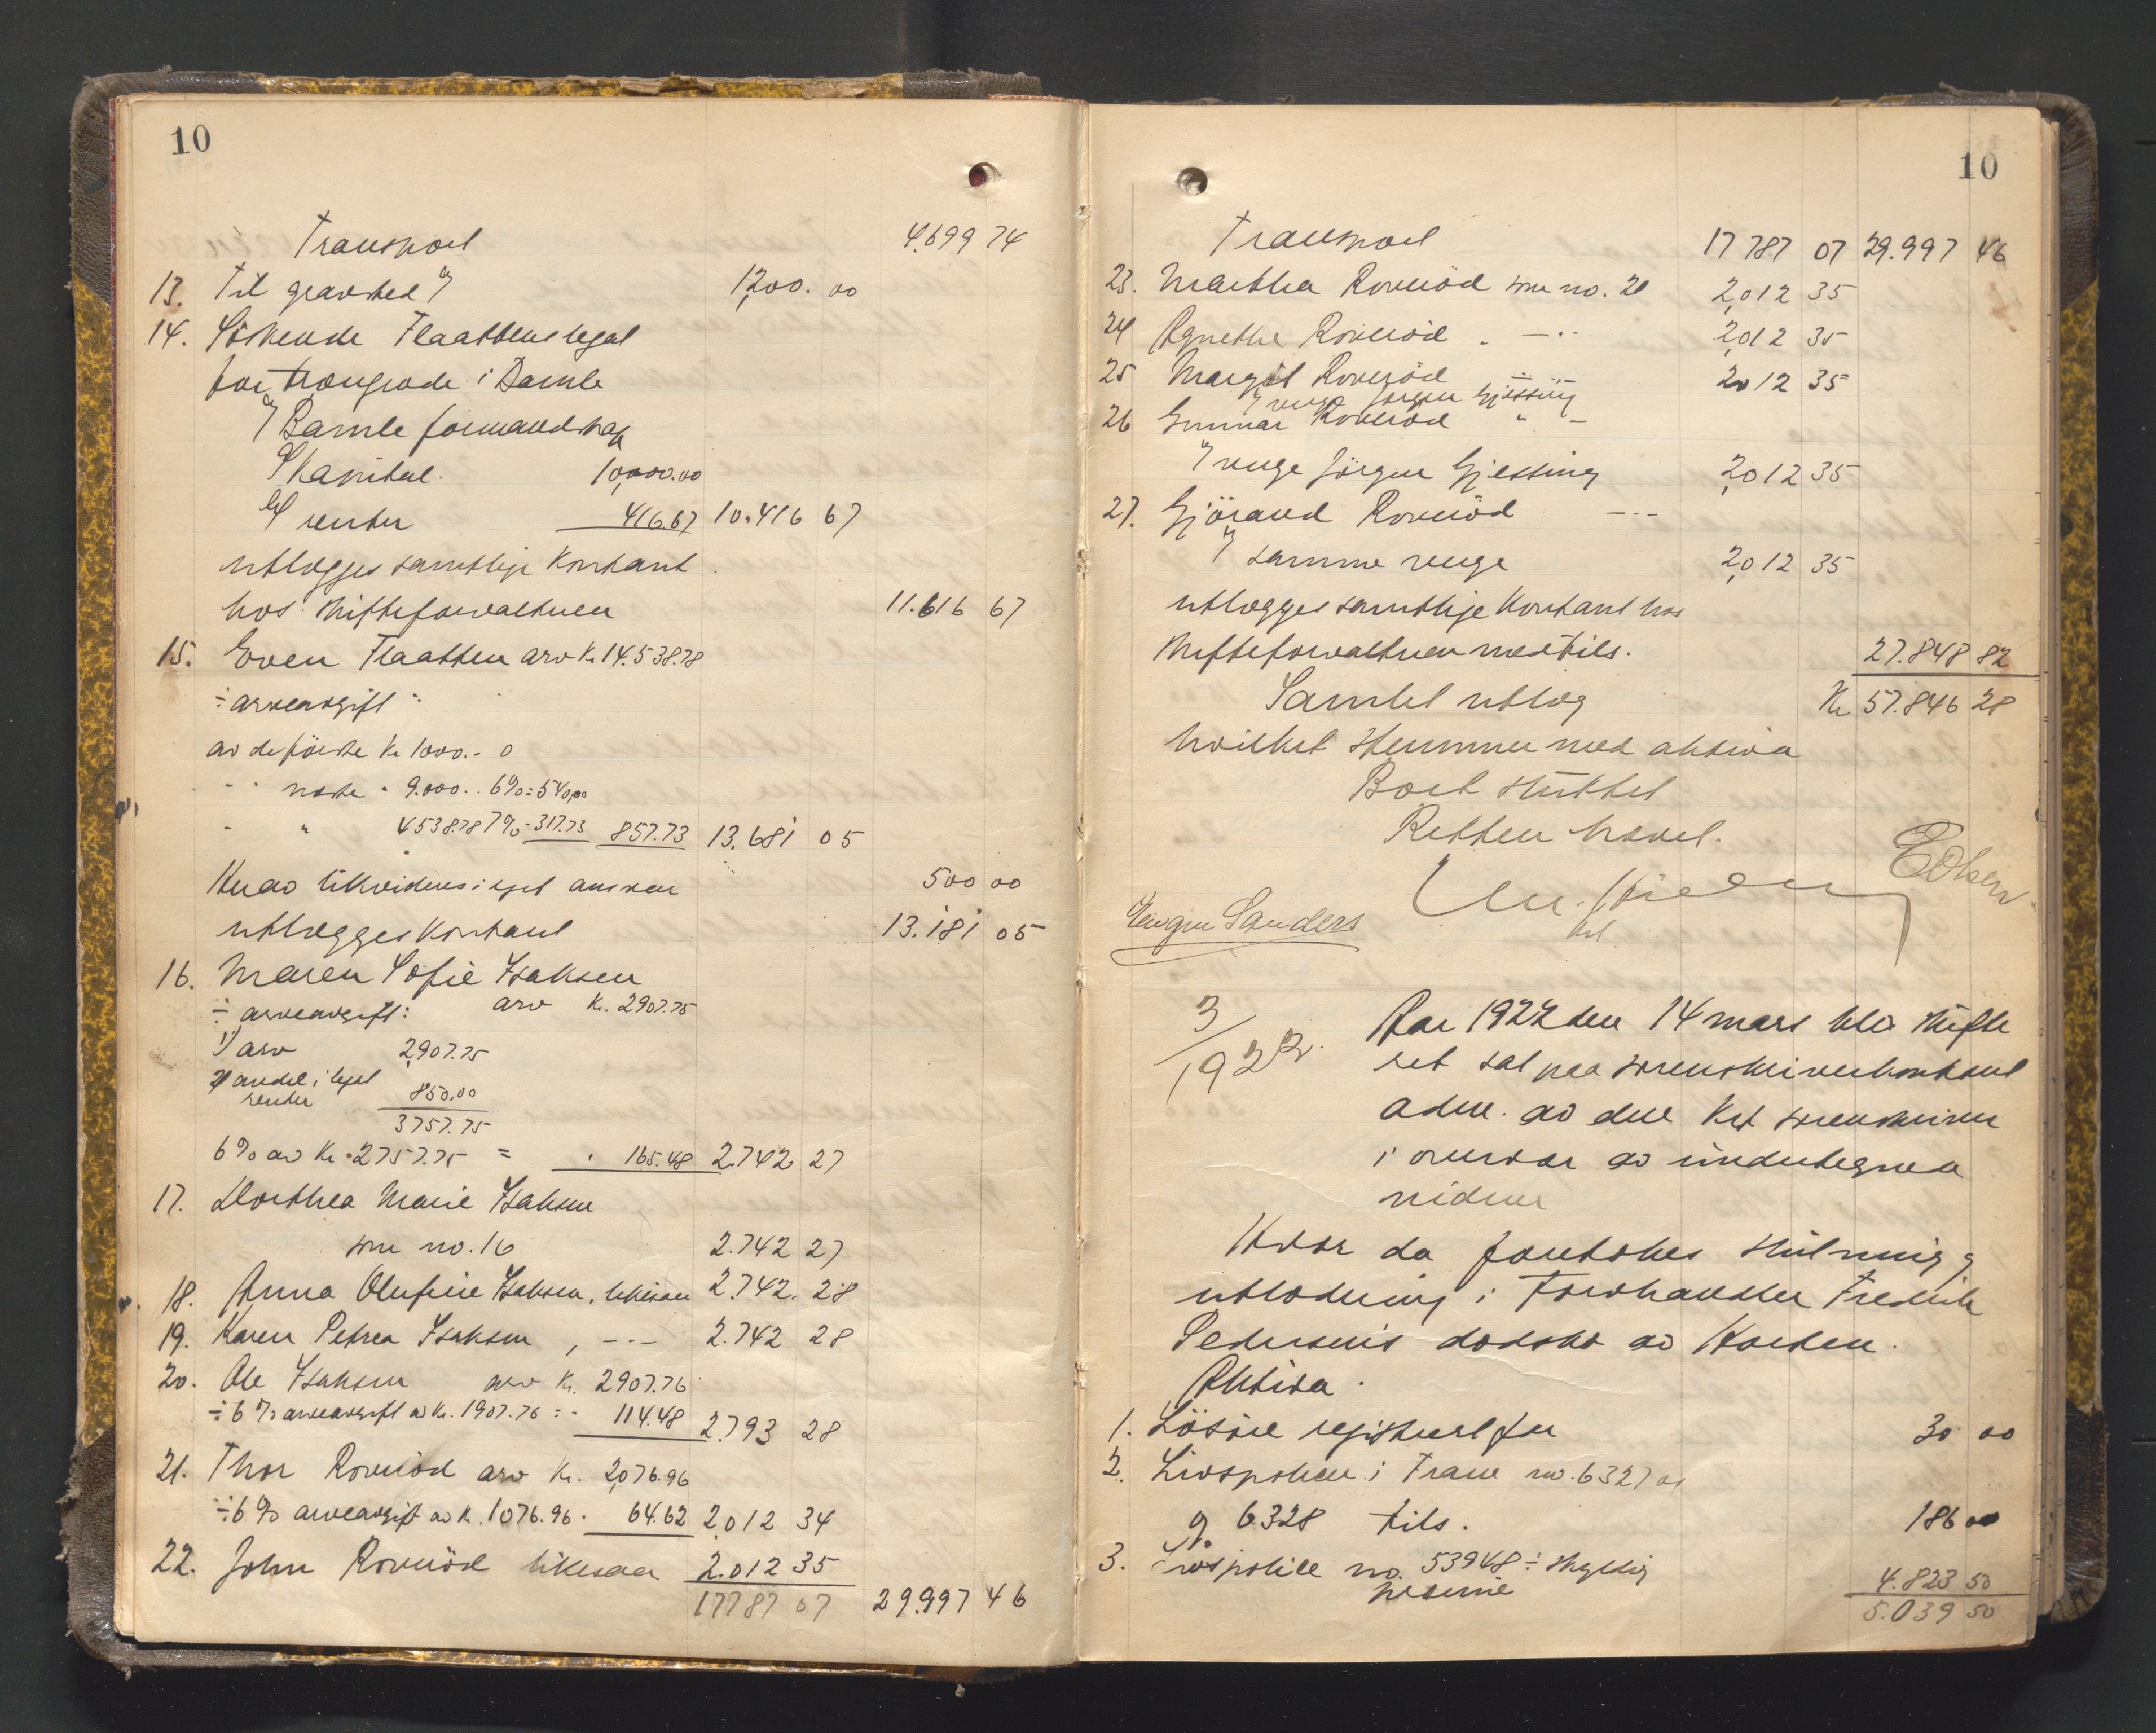 10
Transport 4.699 74
13. Til gravsted 1200. 00
14. Söskende Flaattens legat
for trængende i Bamle
Bamle formandskap
Kapital. 10,000.00
renter 416.67 10.416 67
utlægges samtlige kontant
hos skifteforvalteren 11.616 67
15. Even Flaatten arv Kr 14.538.78
÷ arveavgift:
av de förste Kr 1000.- 0
- - næste " 9.000. . 6% = 540,00
- " 4538.78 7% - 317.73 857.73 13.681 05
Herav likvideres i eget ansvar 500 00
utlægges kontant 13.181 05
16. Maren Sofie Isaksen
arv Kr. 2907.75
÷ arveavgift:
1) arv 2907.75
2) andel i legat
renter 850.00
3757.75
6% av Kr. 2757.75 = . 165.48 2.742 27
17. Dorthea Marie Isaksen
som no. 16 2.742 27
18. Anna Olufine Isaksen, likesaa 2.742. 28
19. Karen Petrea Isaksen , -.- 2.742 28
20. Ole Isaksen arv Kr. 2907.76
÷ 6% arveavgift av Kr. 1907.76 = - 114.48 2.793 28
21. Thor Rovnöd arv Kr. 2,076.96
÷ 6% arveavgift av Kr. 1076.96 . 64.62 2,012 34
22. John Rovnöd likesaa 2.012 35
17787 07 29.997 46
10
Transport 17 787 07 29.997 46
23. Martha Rovnöd som no. 21 2,012 35
24 Agnethe Rovnöd . -.. 2,012 35
25 Margit Rovnöd 2,012 35
verge Jörgen Gjessing
26 Gunnar Rovnöd " -
verge Jörgen Gjessing 2,012 35
27. Gjörand Rovnöd -..
samme verge 2,012 35
utlægges samtlige kontant hos
skifteforvalteren med tils. 27.848 82
Samlet utlæg Kr 57.846 28
hvilket stemmer med aktiva
Boet sluttet
Retten hævet.
E Olsen
Jörgen Sanders
3/1922.
Aar 1922 den 14 mars blev skifte
ret sat paa sorenskriverkontoret
adm. av den kst sorenskriver
i overvær av undertegnede
vidner
Hvor da foretokes slutning og
utlodning i Forhandler Fredrik
Pedersens dödsbo av Kørden.
Aktiva.
1. Lösöre registrert for 30 00
2. Livspolice i Trane no. 6327 og
og 6328 tils. 186 00
3. Livspolice no. 53948 ÷ skyldig
præmie 4.823 50
5.039 50